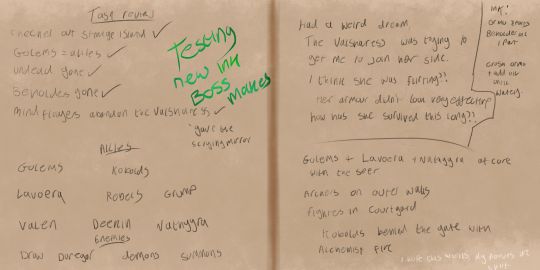 Task review
at strange island ✓
Golems = allies ✓
undead gone ✓
Beholders gone ✓
mind flayers abandon the Valsharess ✓
*gave the
scrying mirror
Testing
new ink
Boss
makes
Allies
Golems Kobolds
Lavoera Rebels Grump
Valen Deekin Nathyrra
Enemies
Drow Duregar demons summons
Had a weird dream
The Valsharess was trying to
get me to join her side.
I think she was flirting?!
Her armor didn't look very effective
how has she survived this long?!
Ink:
Beholder
1 part
+ add
until
watery.
Golems + Lavoera + Nathyrra at core
with the seer.
Archers on outer walls
fighters in Courtyard
Kobolds behind the gate with
Alchemist Fire